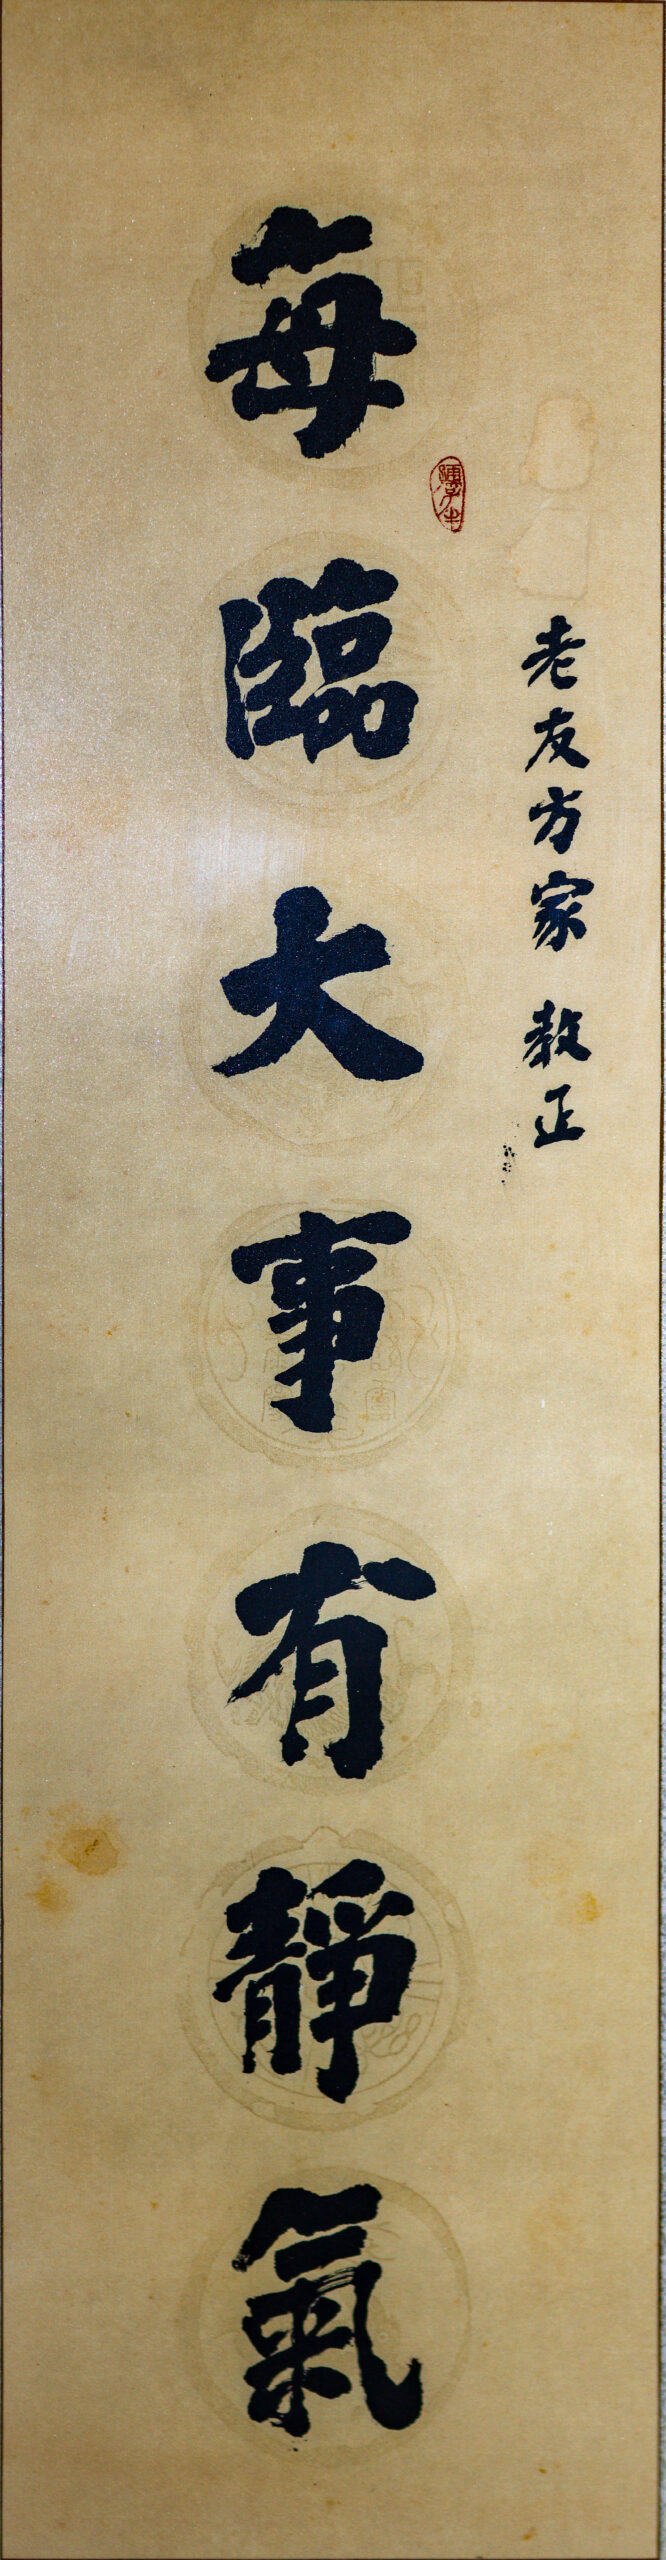 老友方家 教正
每臨大事有靜氣